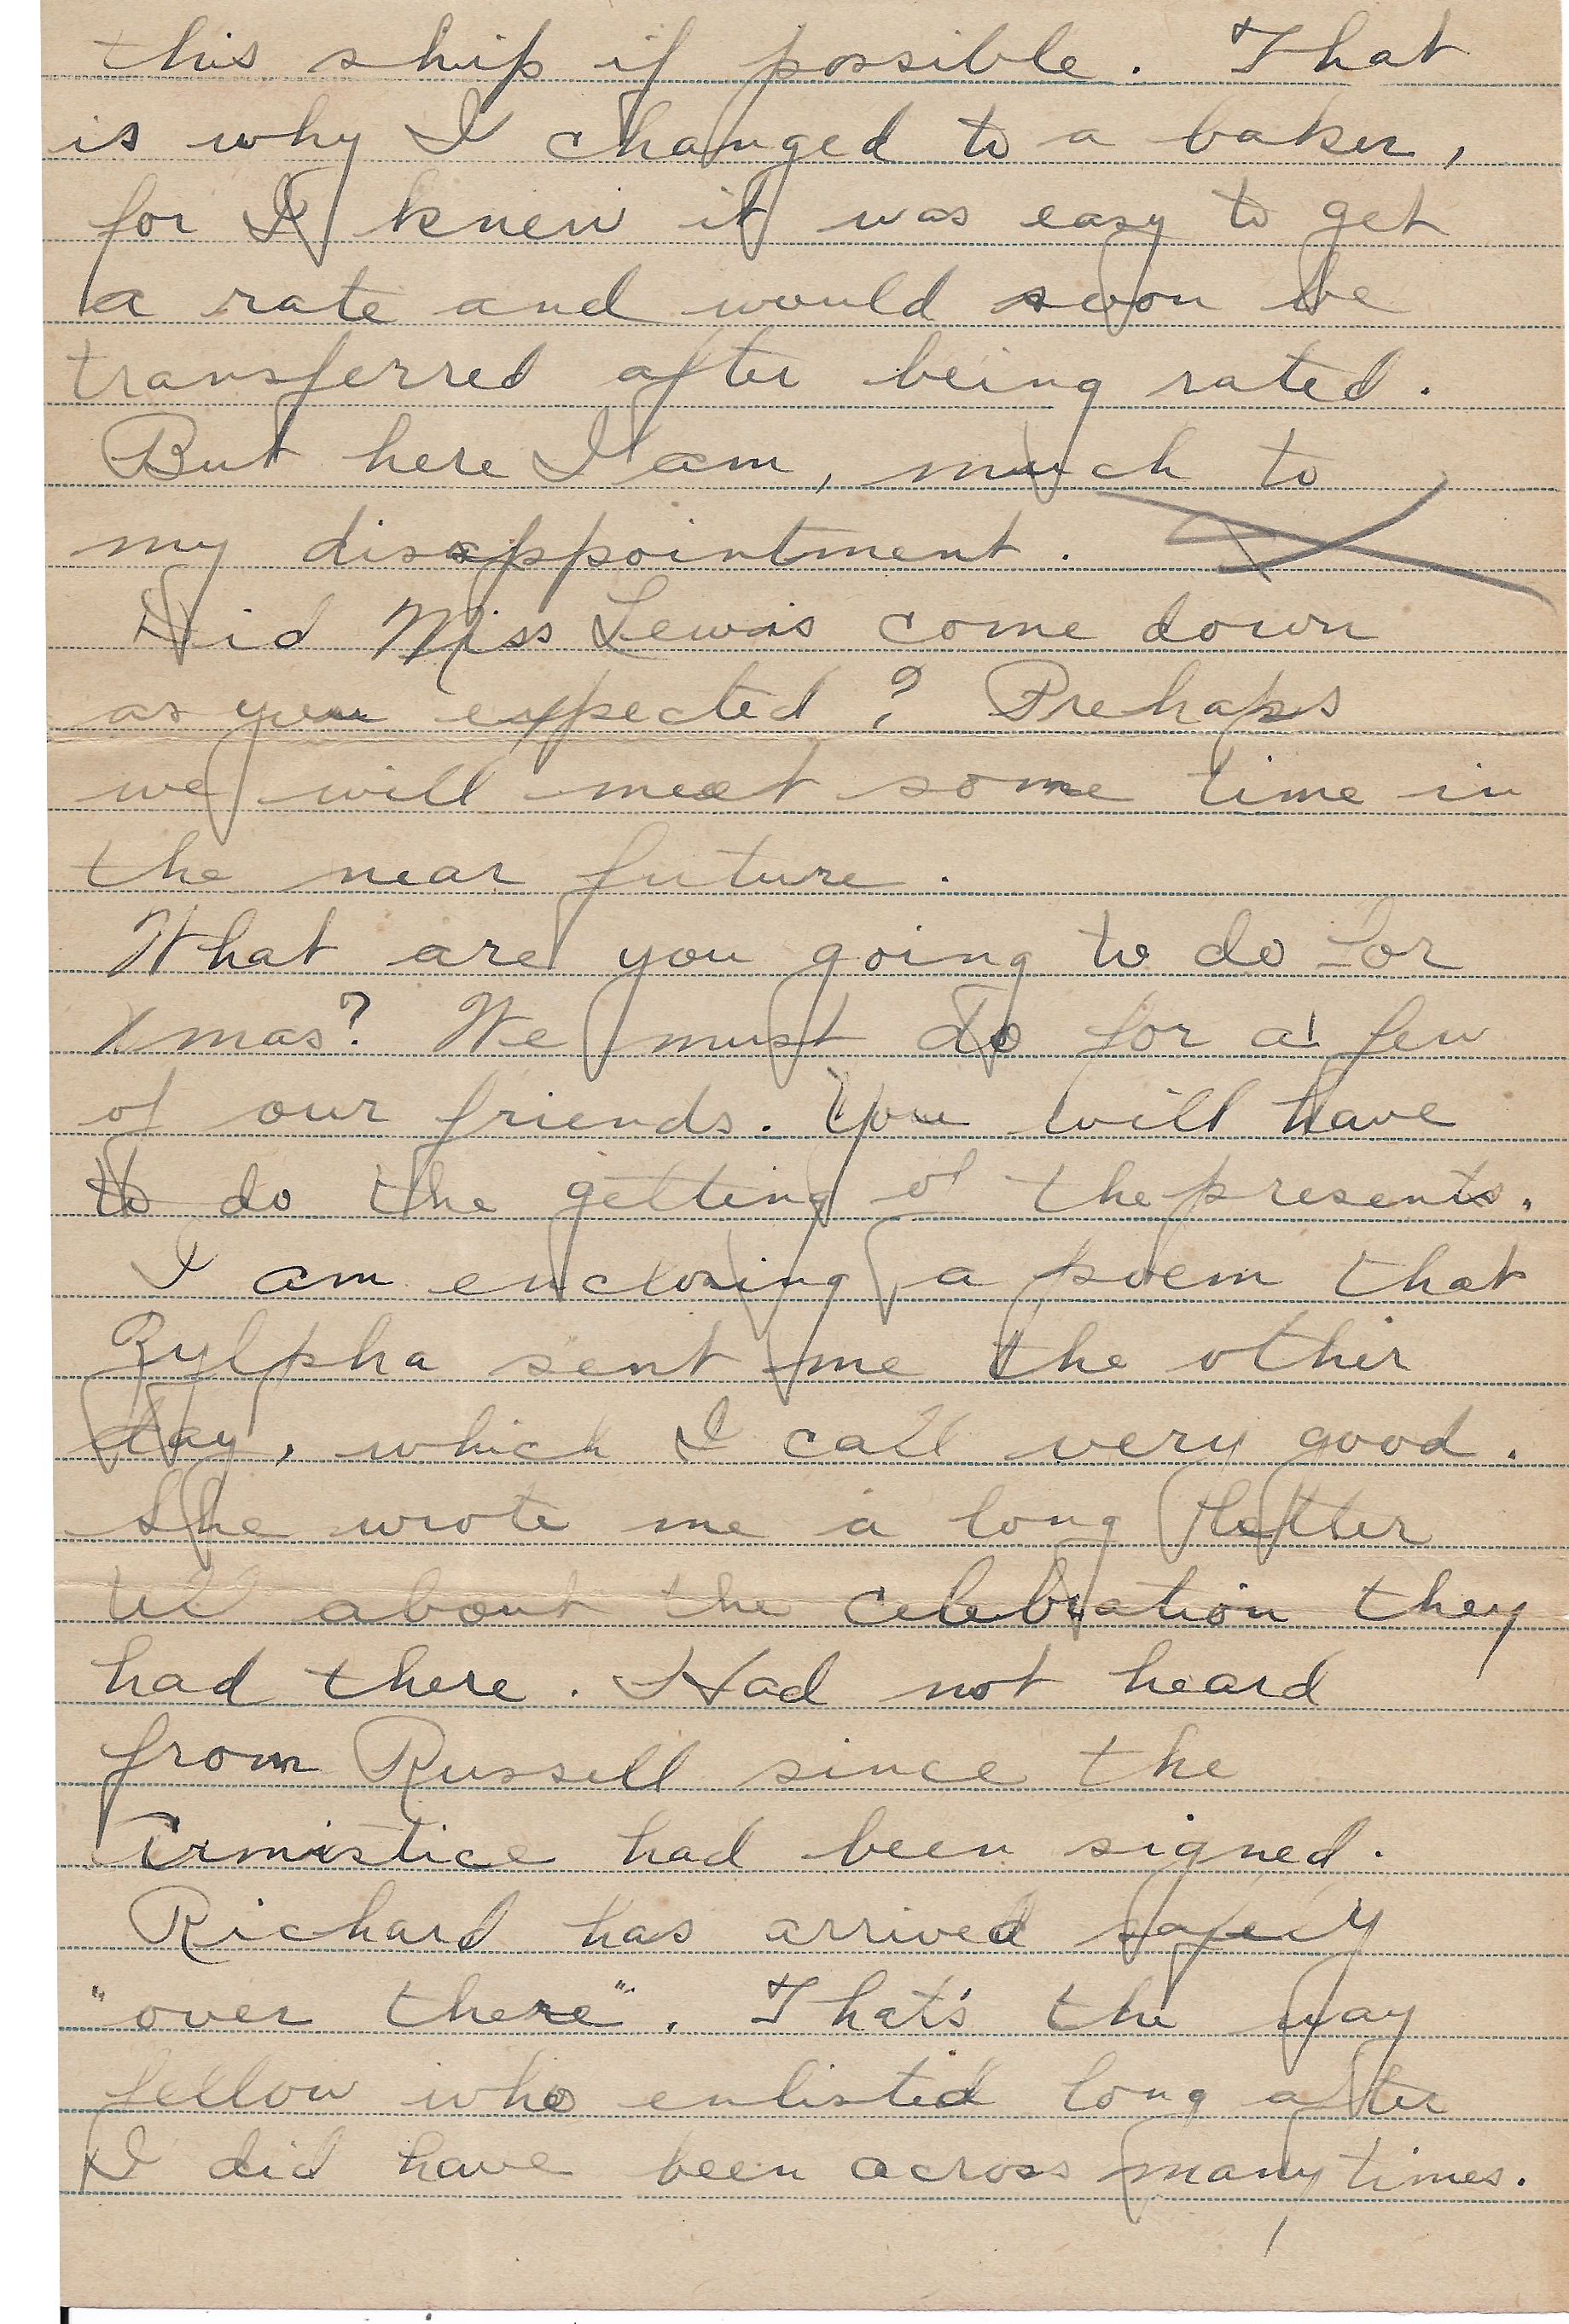 this ship if possible. That
is why I changed to a baker,
for I knew it was easy to get
a rate and would soon be
transferred after being rated.
But here I am, much to
my disappointment.
Did Miss Lewis come down
as you expected? Prehaps
we will meet some time in
the near future.
What are you going to do for
Xmas? We must do for a few
of our friends. You will have
to do the getting of the presents.
I am enclosing a poem that
Zylpha sent me the other
day, which I call very good.
She wrote me a long letter
all about the celebration they
had there. Had not heard
from Russell since the
Armistice had been signed.
Richard has arrived safely
"over there". That's the way
fellow who enlisted long after
I did have been across many times.